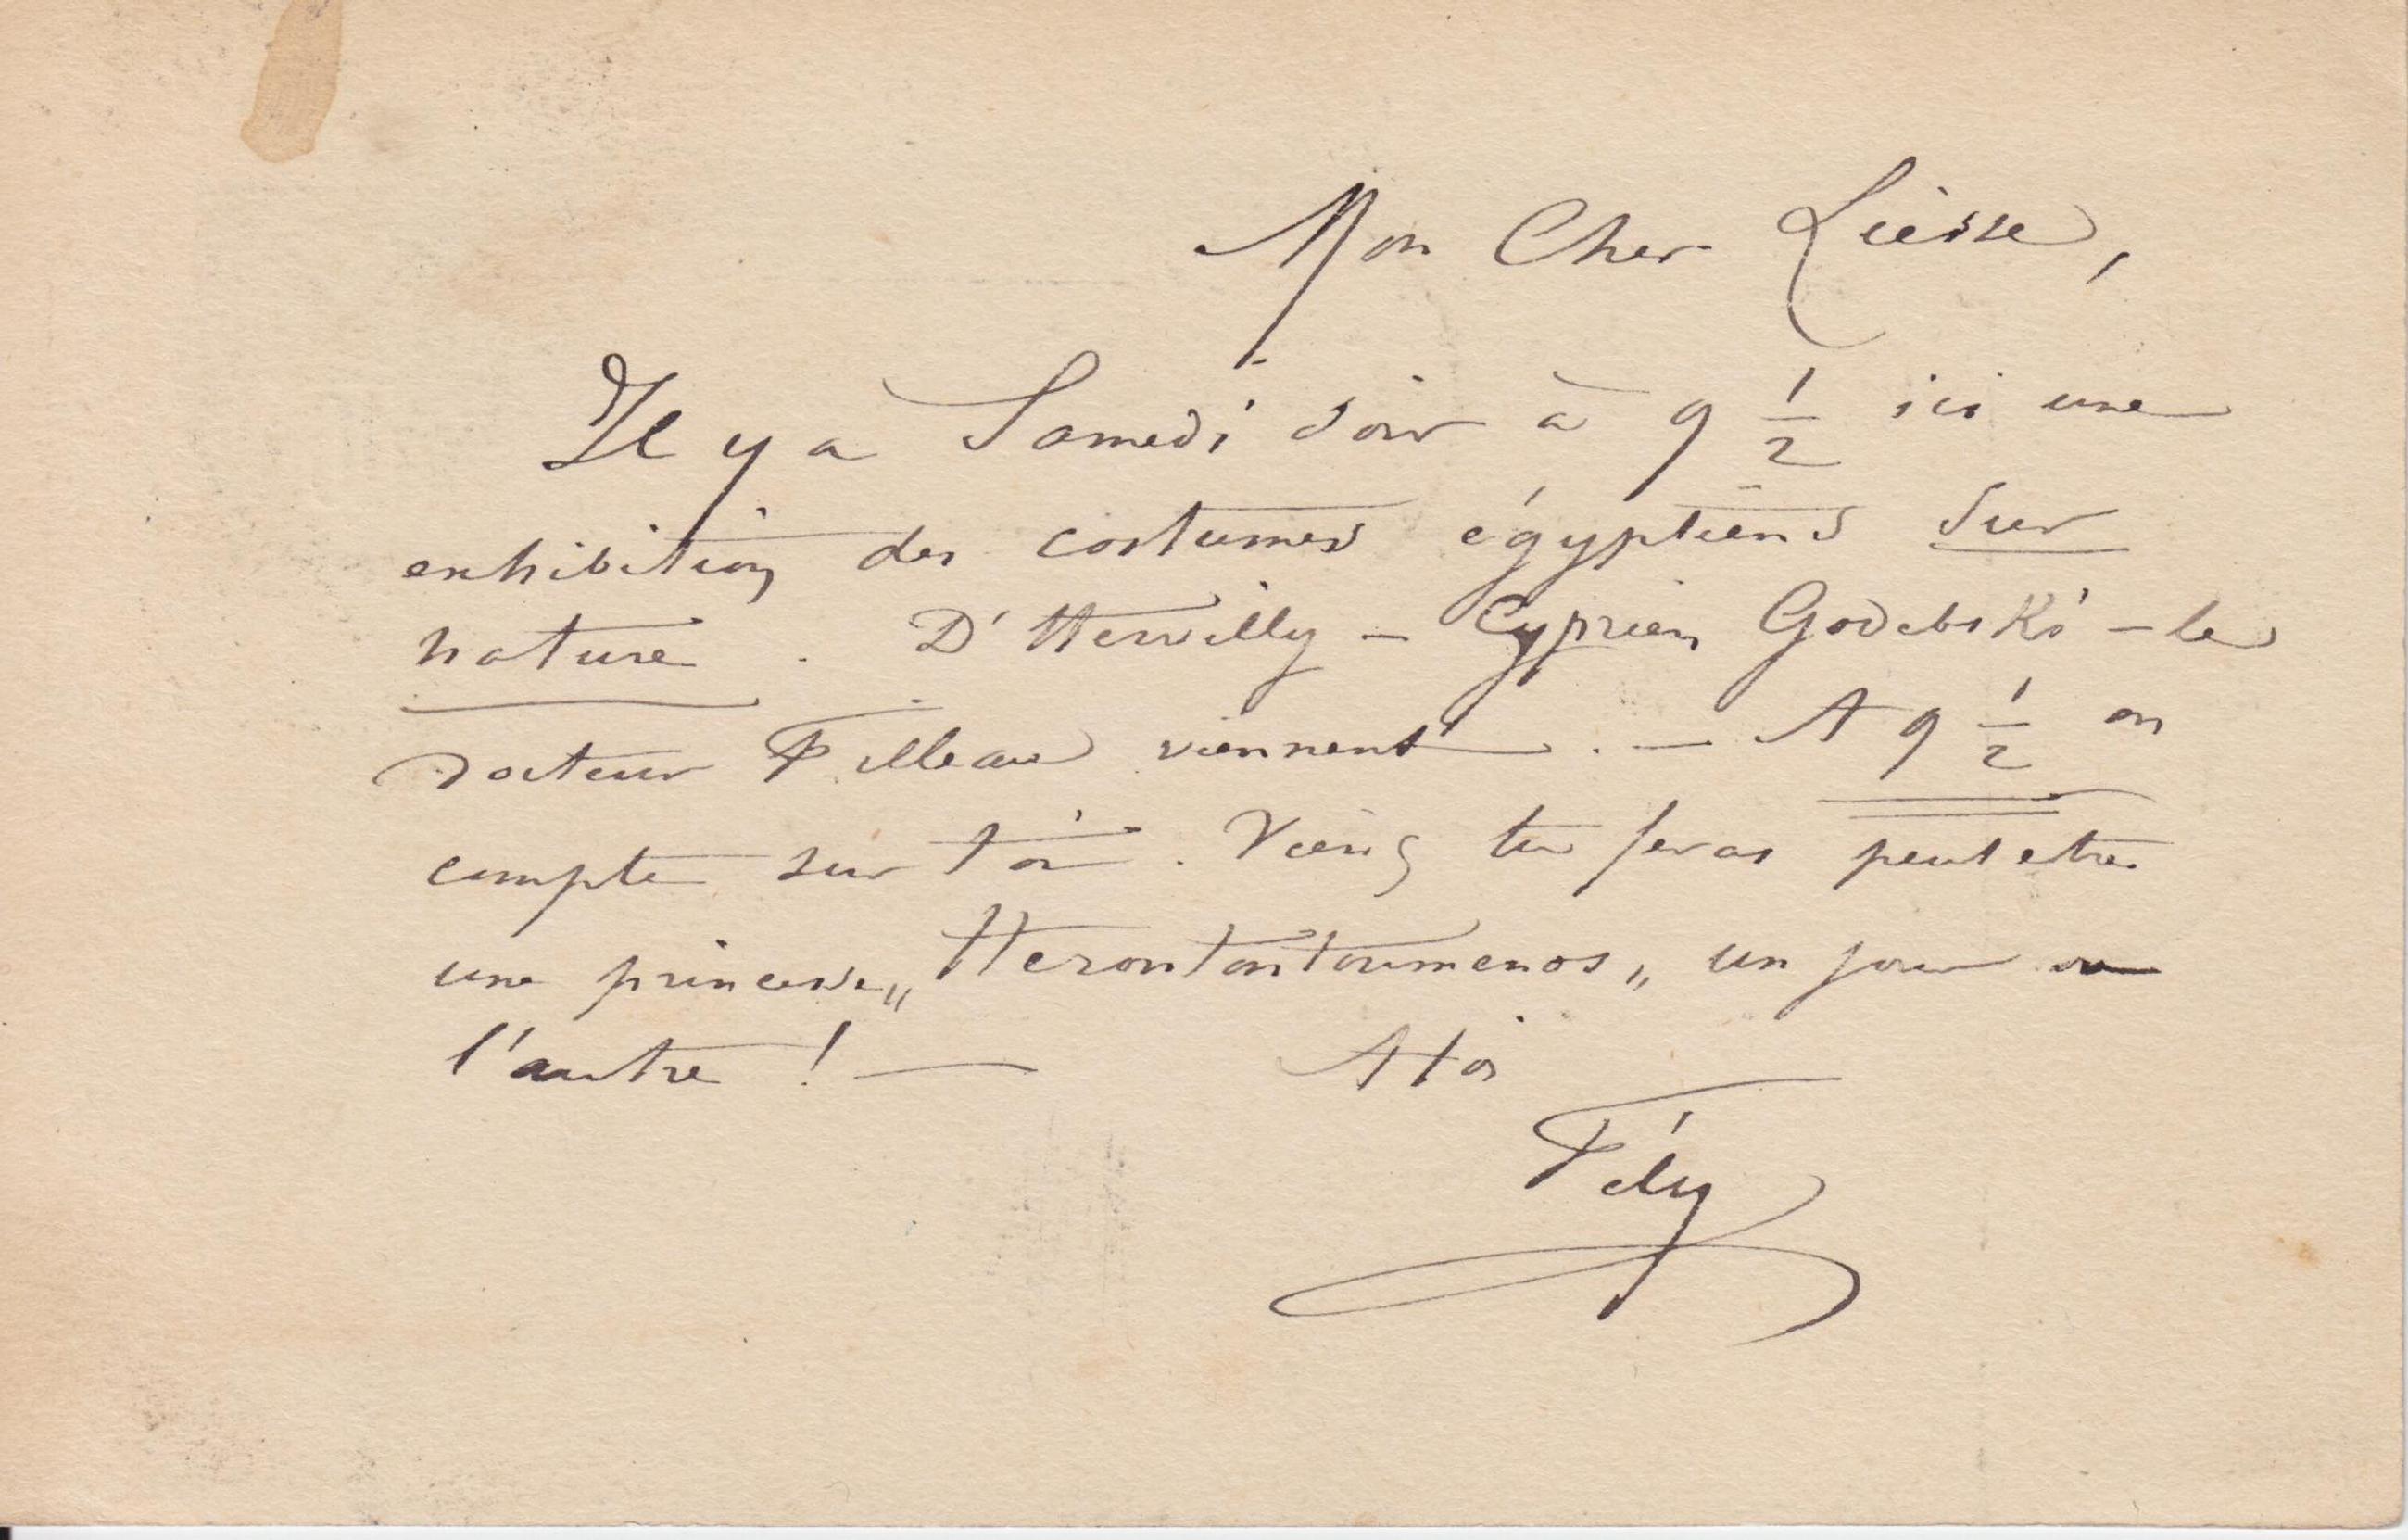 Mon Cher Liesse,
Il y a Samedi soir à 9 1/2 ici une
exhibition des costumes égyptiens sur
nature. D'Hervilly – Cyprien Godebski – le
Docteur Filleau viennent. — A 9 1/2 on
compte sur toi. Viens tu feras peut etre
une princesse „Herontontoumenos„ un jour ou
l'autre ! —  A toi
Fély